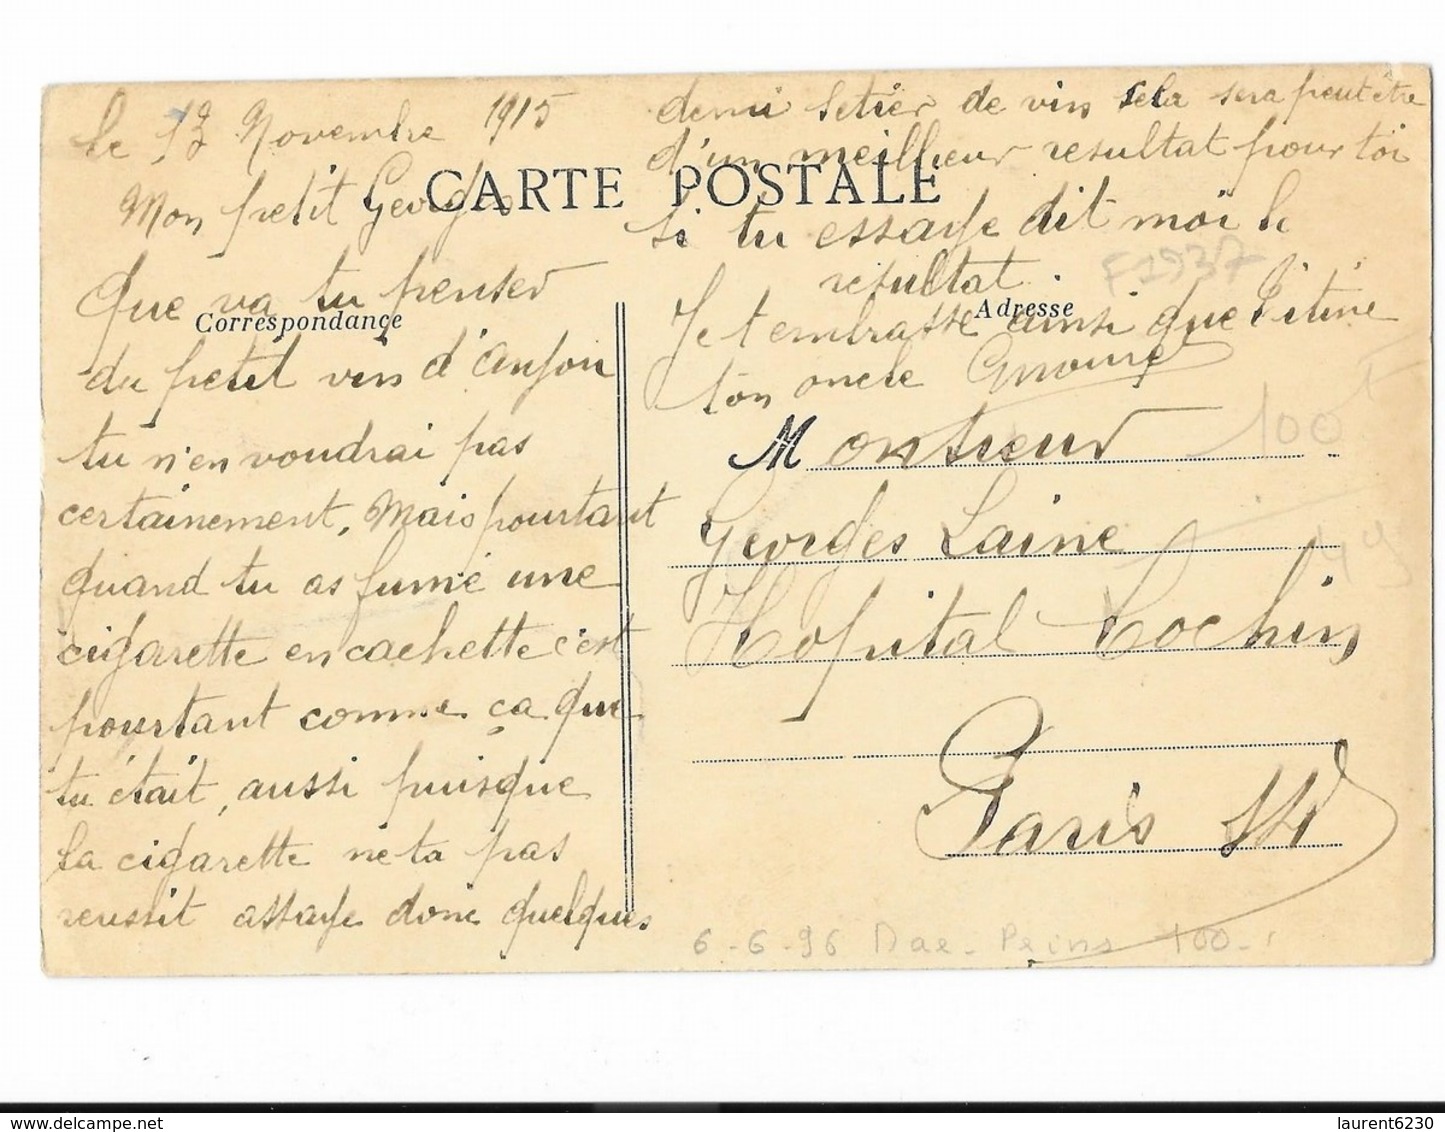 le 13 Novembre 1915
Mon petit Georges
CARTE POSTALE
Que va tu penser
Correspondance
du petit vin d'anjou
tu n'en voudrai pas
certainement, Mais pourtant
quand tu as fumé une
cigarette en cachette c'est
pourtant comme ça que
tu était, aussi puisque
la cigarette ne ta pas
reussit assaye donc quelques
demi setier de vin sela sera peut être
d'un meilleur resultat pour toi
si tu essaye dit moi le
resultat.
F1937
Adresse
Je t embrasse ainsi que Titine
ton oncle
Monsieur
100
Georges Laine
Hopital Cochin
Paris 14
6-6-96 100-
laurent6230